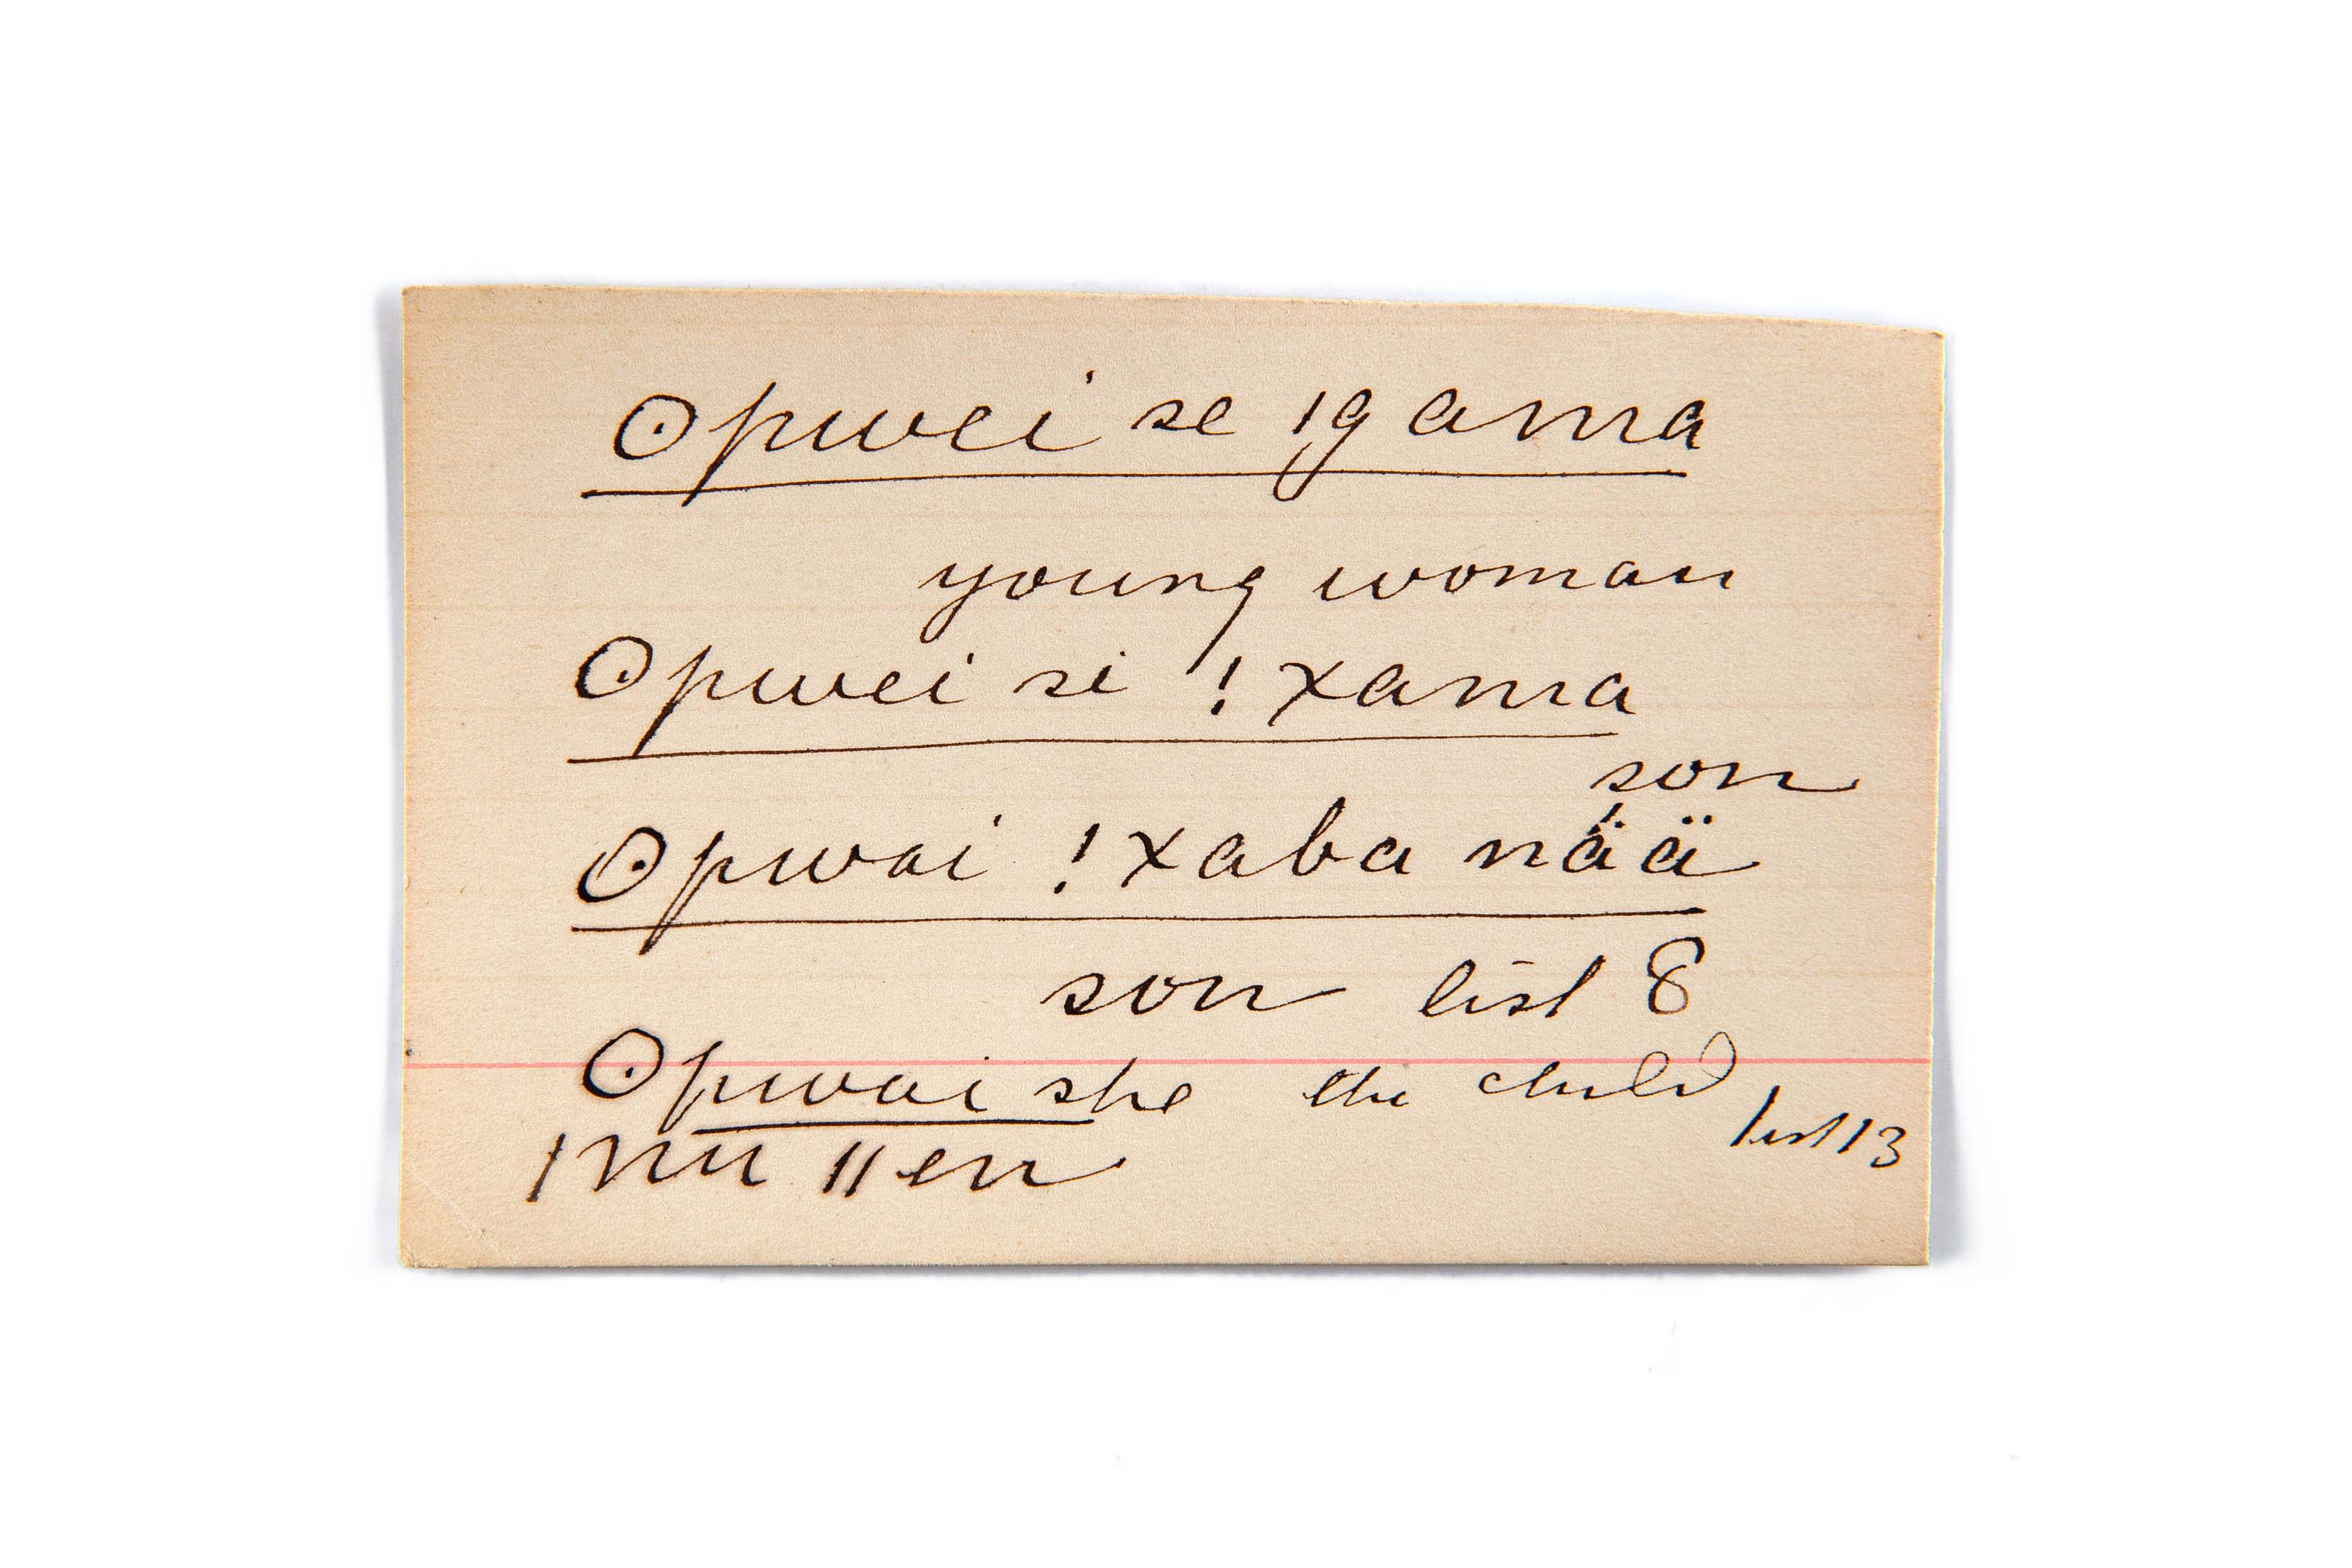 ʘpwei se ǀgama
young woman
ʘpwei si ǃxama
son
ʘpwai ǃxaba nä́ä
son list 8
ʘpwai she the child
list 13
ǀnu ǁen